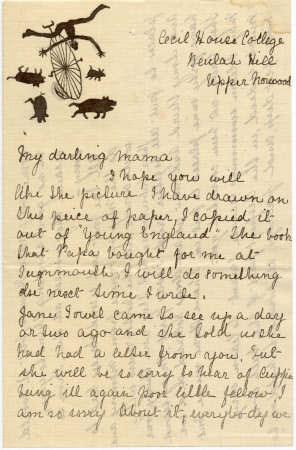 Cecil House College
Beulah Hill
Upper Norwood
My darling Mama
I hope you will
like the picture I have drawn on
this peice of paper, I copied it
out of "Young England" the book
that Papa bought for me at
Teignmouth I will do something
else next time I write.
Jane Towel came to see us a day
or two ago and she told us she
had had a letter from you, but
she will be so sorry to hear of
being ill again poor little fellow I
am so sorry about it, everybody we